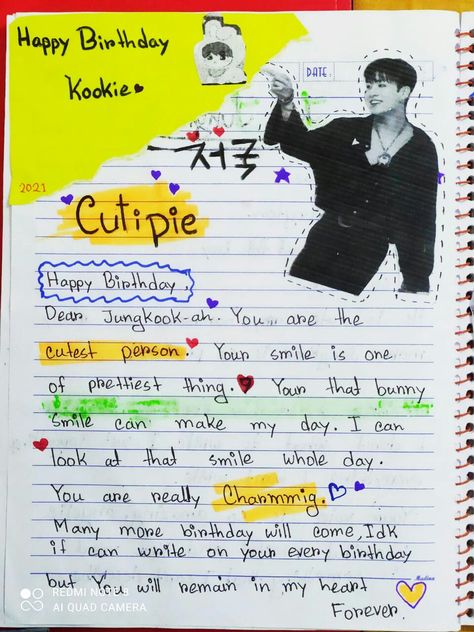 Happy Birthday
Kookie
DATE:
2021
Cutipie
Happy Birthday.
Dear Jungkook-ah. You are the
cutest person. Your smile is one
of prettiest thing. Your that bunny
smile can make my day. I can
look at that smile whole day.
You are really Charmmig.
Many more birthday will come, Idk
if can write on your every birthday
but You will remain in my heart
Forever.
REDMI NOTE 8
AI QUAD CAMERA